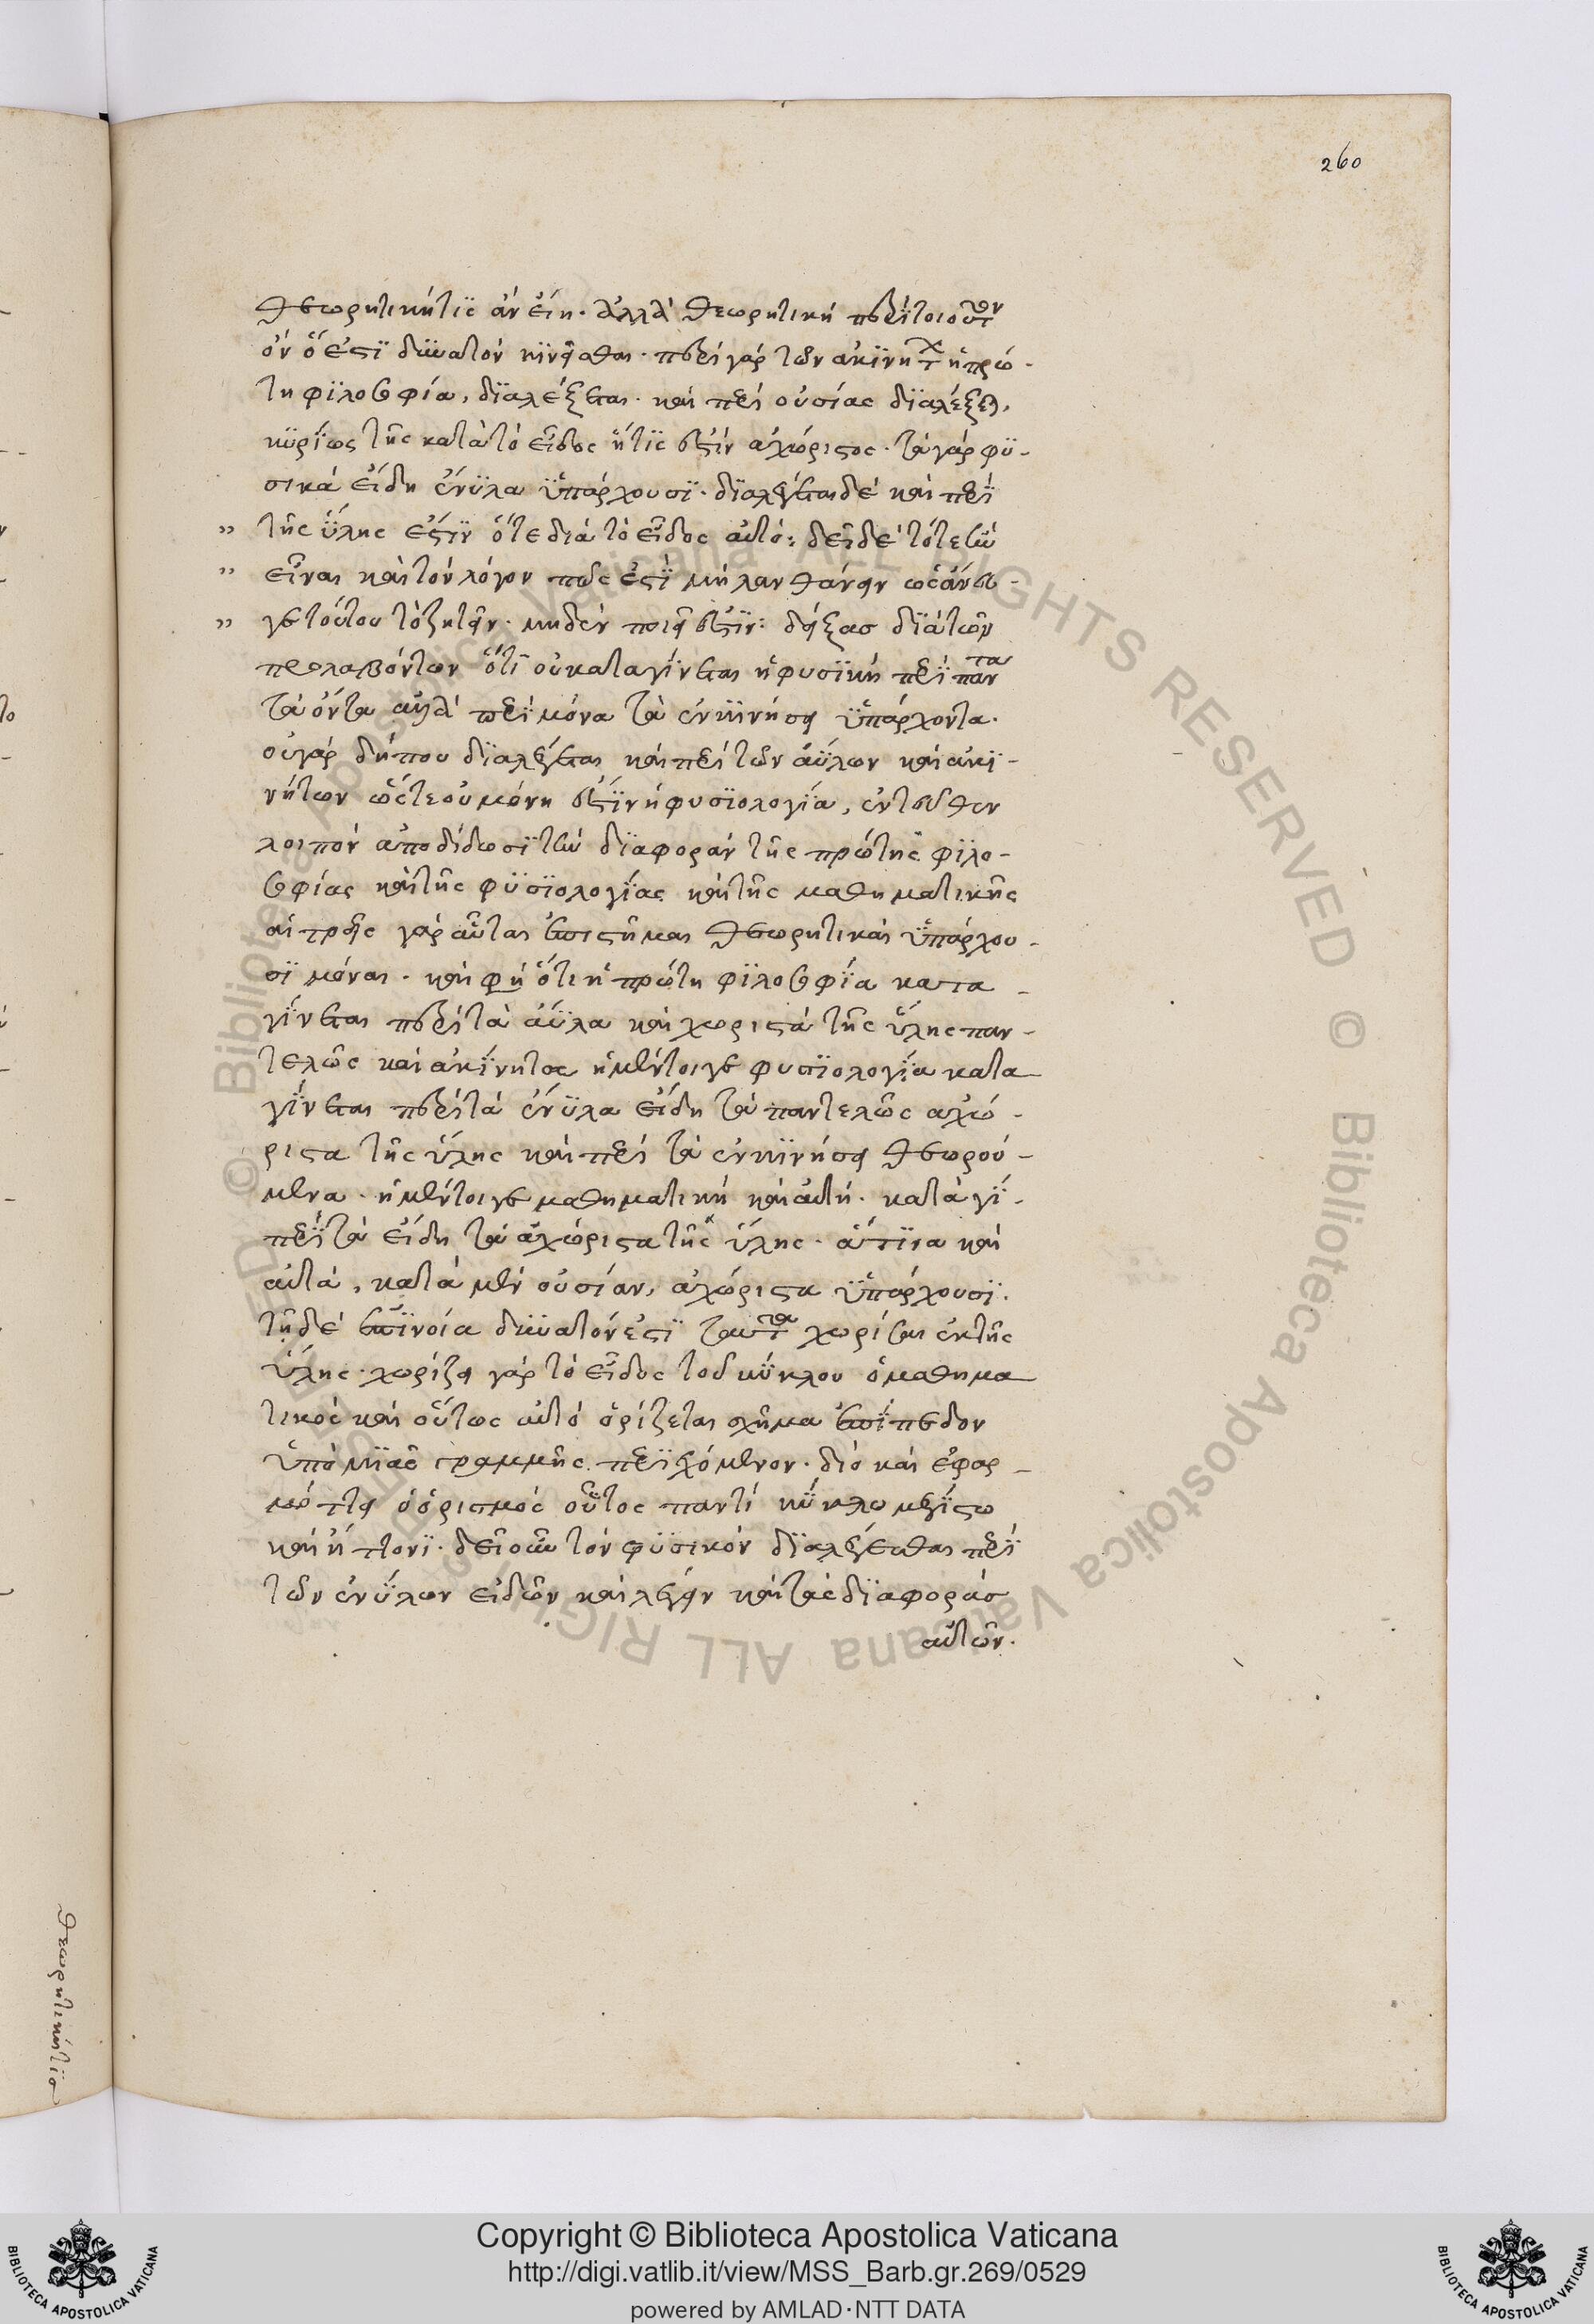 260
θεωρητικήτϊς ἀν εἴη· ἀλλὰ θεωρητικὴ περὶτοιοῦτον
ὄν ὅ ἐστϊ δϋνατόν κϊνεῖσθαι· περὶ γάρ τῶν ἀκϊνήτων ἡ πρώ-
τη φϊλοσοφία, δϊαλέξεται· καὶ περὶ οὐσίας δϊαλέξεται,
κϋρίως τῆς κατὰ τὸ εἶδος ἥτϊς ἐστὶν ἀχώριστος· τὰ γάρ φϋ-
σικὰ εἴδη ἔνϋλα ϋπάρχουσϊ· δϊαλέγεται δὲ καὶ περὶ
" τῆς ὕλης ἔστϊν ὅτε διὰ τὸ εἶδος αὐτό: δεῖ δὲ τότε τὺ
" εἶναι καὶ τὸν λόγον πῶς ἐστϊ μὴ λανθάνειν ὡς ἄνευ
" γε τούτου τὸ ζητεῖν· μηδέν ποιεῖν ἐστϊν: δείξας διὰ τῶν
προλαβόντων ὅτϊ οὐ καταγίνεται ἡ φυσϊκὴ περὶ πάντα
τὰ ὄντα ἀλλὰ περὶ μόνα τὰ ἐν κϊνήσει ϋπάρχοντα·
οὐ γάρ δήπου δϊαλέγεται καὶ περὶ τῶν ἀϋλων καὶ ἀκϊ-
νήτων ὥστε οὐ μόνη ἐστϊν ἡ φυσϊολογϊα, ἐντεῦθεν
λοιπόν ἀποδίδωσϊ τὴν δϊαφοράν τῆς πρώτης φϊλο-
σοφίας καὶ τῆς φϋσϊολογϊας καὶ τῆς μαθηματικῆς
αἱ τρεῖς γάρ αὗται ἐπιστῆμαι θεωρητικαὶ ϋπάρχου-
σϊ μόναι· καὶ φησὶ ὅτι ἡ πρώτη φϊλοσοφϊα κατα-
γϊνεται περὶ τὰ ἄϋλα καὶ χωριστὰ τῆς ὕλης παν-
τελῶς καὶ ἀκϊνητος ἡ μέντοιγε φυσϊολογϊα κατα
γϊνεται περὶ τὰ ἔνϋλα εἴδη τὰ παντελῶς ἀχώ-
ριστα τῆς ὕλης καὶ περὶ τὰ ἐν κϊνήσει θεωρού-
μενα· ἡ μέντοιγε μαθηματικὴ καὶ αὐτὴ· καταγϊ-
περὶ τὰ εἴδη τὰ ἀχώριστα τῆς ὕλης· ἅτϊνα καὶ
αὐτὰ, κατὰ μὲν οὐσίαν, ἀχώριστα ϋπάρχουσϊ·
τῆ δὲ ἐπϊνοία δϋνατόν ἐστϊ ταῦτα χωρίσαι ἐκ τῆς
ὕλης· χωρίζει γάρ τὸ εἶδος τοῦ κϋκλου ὁ μαθημα
τικὸς καὶ οὕτως αὐτὸ ὁρίζεται σχῆμα ἐπϊπεδον
ὑπὸ μϊᾶς γραμμῆς περϊεχόμενον· διὸ καὶ ἐφαρ-
μόττει ὁ ὁρισμός οὗτος παντὶ κϋκλω μεγϊστω
καὶ ἥττονϊ· δεῖ οὖν τὸν φϋσικόν δϊαλέγεσθαι περὶ
τῶν ἐνϋλων εἰδῶν καὶ λέγειν καὶ τὰς δϊαφοράς
αὐτῶν.
θεωρητικήτϊς
Copyright © Biblioteca Apostolica Vaticana
http://digi.vatlib.it/view/MSS_Barb.gr.269/0529
powered by AMLAD·NTT DATA